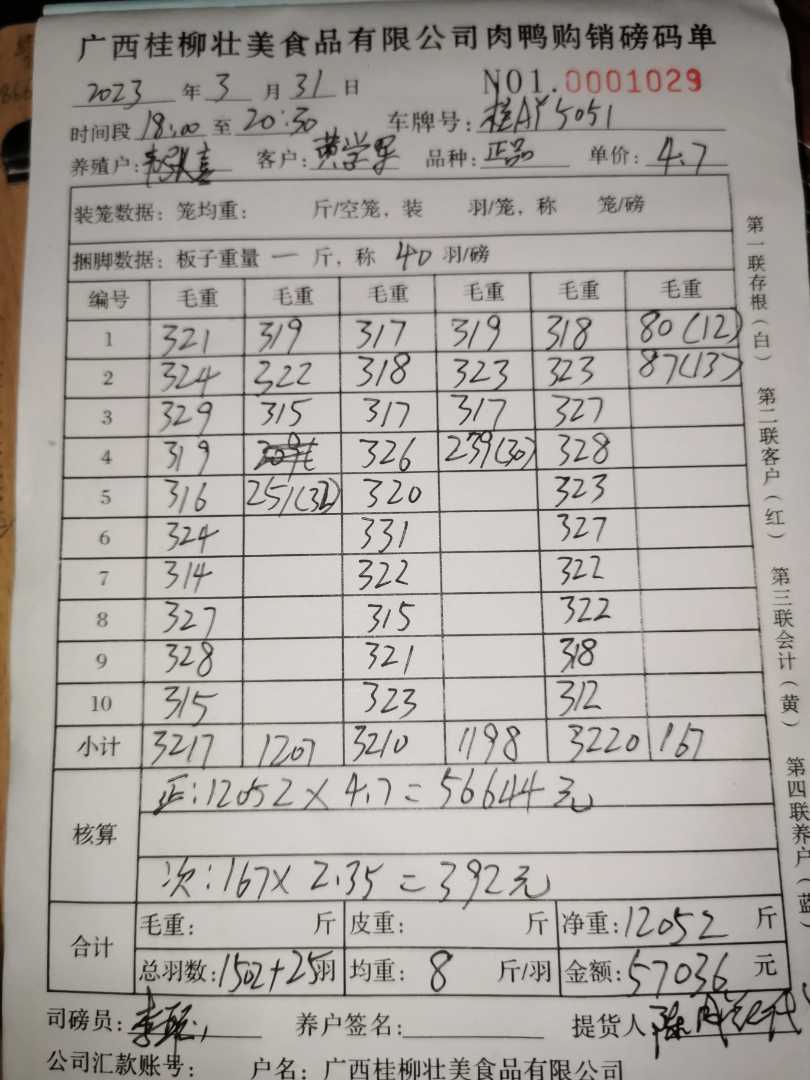 广西桂柳壮美食品有限公司肉鸭购销磅码单
2023 年 3 月 31 日 NO1.0001029
时间段 18:00 至 20:30 车牌号: 桂AY5051
养殖户: 客户: 黄学军 品种: 正品 单价: 4.7
装笼数据: 笼均重: 斤/空笼, 装 羽/笼, 称 笼/磅
捆脚数据: 板子重量 一 斤, 称 40 羽/磅
编号 毛重 毛重 毛重 毛重 毛重 毛重
1 321 319 317 319 318 80(12)
2 324 322 318 323 323 87(13)
3 329 315 317 317 327
4 319 326 239(30) 328
5 316 251(32) 320 323
6 324 331 327
7 314 322 322
8 327 315 322
9 328 321 318
10 315 323 312
小计 3217 1207 3210 1198 3220 167
核算
正: 12052 × 4.7 = 56644元
次: 167 × 2.35 = 392元
合计
毛重: 斤 皮重: 斤 净重: 12052 斤
总羽数: 1502+25羽 均重: 8 斤/羽 金额: 57036 元
司磅员: 养户签名: 提货人
公司汇款账号: 户名: 广西桂柳壮美食品有限公司
第一联存根(白)
第二联客户(红)
第三联会计(黄)
第四联养户(蓝